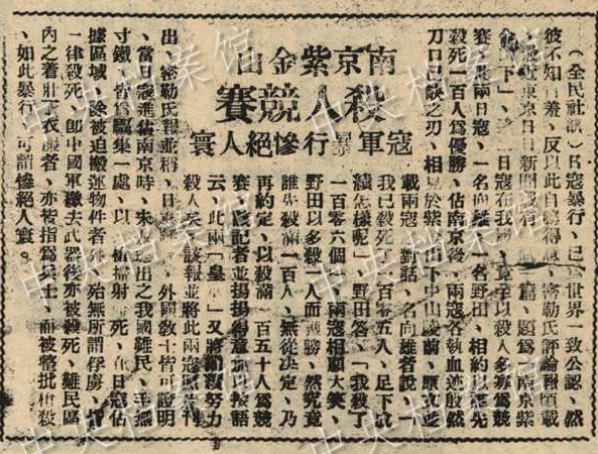 南京紫金山
殺人競賽
寇軍暴行慘絕人寰
（全民社訊）日寇暴行、已為世界一致公認、然
彼不知自羞、反以此自鳴得意、密勒氏評論報頃載
、最近東京日日新聞載有一篇、題為南京紫
金山下」、二日寇在我國、竟至以殺人多寡為競
賽、此兩日寇、一名向雄、一名野田、相約以誰先
殺死一百人為優勝、佔南京後、兩寇各執血迹殷然
刀口已缺之刃、相見於紫金山下中山陵前、原文並
載兩寇對話、名向雄者說、「
我已殺死了一百零五人、足下成
績怎樣呢」、野田答、「我殺了
一百零六個」、兩寇相顧大笑、
野田以多殺一人而獲勝、然究竟
誰先殺滿一百人、無從決定、乃
再約定、以殺滿一百五十人為競
賽、該記者並揚揚得意施以按語
云、此兩「皇軍」又將繼續努力
殺人矣、該報並將此兩寇照片刊
出、密勒氏報並稱、日寇暴行、外國教士皆可證明
、當日寇進佔南京時、未及逃出之我國難民、手無
寸鐵、皆為驅集一處、以機槍掃射而死、在日寇佔
據區域、除被迫搬運物件者外、殆無所謂俘虜、皆
一律殺死、即中國軍繳去武器後亦被殺死、難民區
內之着壯丁衣服者、亦被指為兵士、而被整批槍殺
、如此暴行、可謂慘絕人寰。
中央档案馆